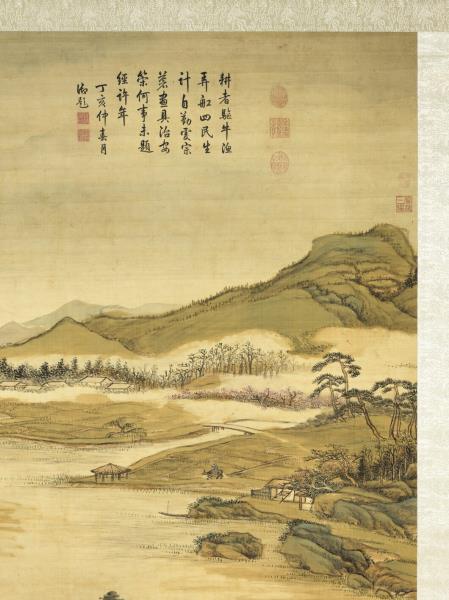 耕者驅牛漁
弄船四民生
計自勤虔宗
蒼畫具治安
策何事未題
經許年
丁亥仲春月
御題